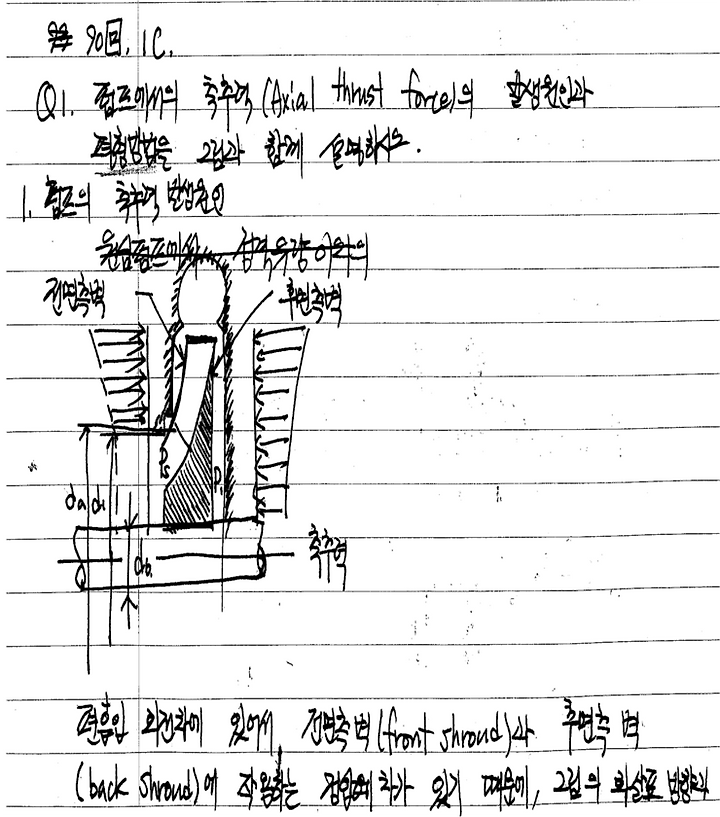 ※ 90회. 1C.
Q1. 펌프에서의 축추력(Axial thrust force)의 발생원인과
평형방법을 그림과 함께 설명하시오.
1. 펌프의 축추력 발생원인
원심펌프에서
전면측벽 후면측벽
Ps P1
da d1
db
축추력
편흡입 회전차에 있어서 전면측벽(front shroud)과 후면측벽
(back shroud)에 작용하는 정압에 차가 있기 때문에, 그림의 화살표 방향과